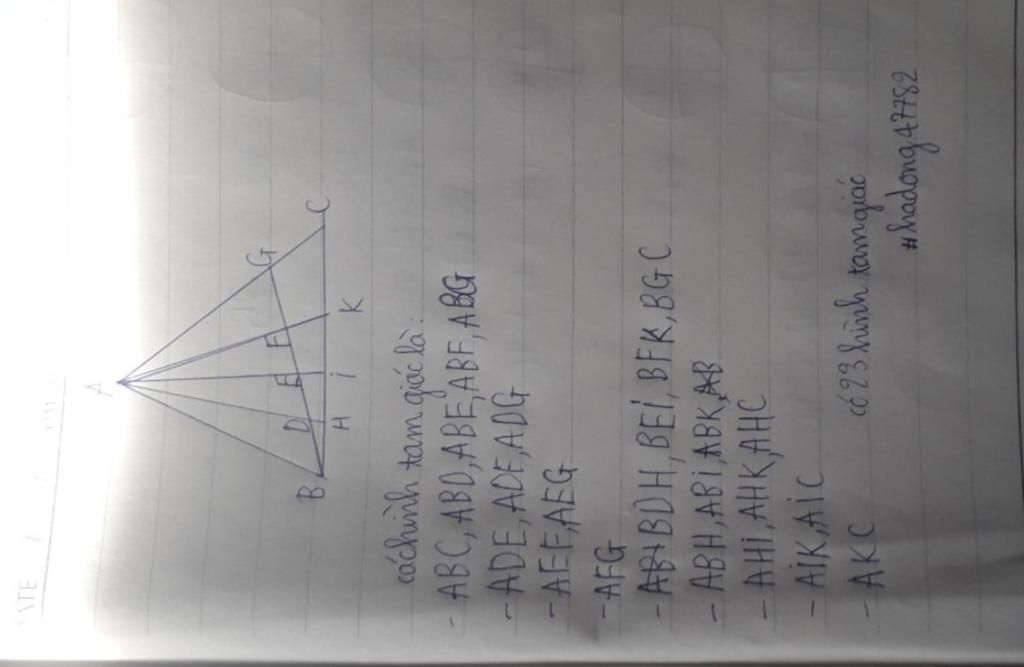 A
G
D
E
F
B
H
i
K
C
các hình tam giác là:
- ABC, ABD, ABE, ABF, ABG
- ADE, ADF, ADG
- AEF, AEG
- AFG
- BDH, BEi, BFK, BGC
- ABH, ABi, ABK
- AHi, AHK, AHC
- AiK, AiC
- AKC
có 23 hình tam giác
#hadong47782